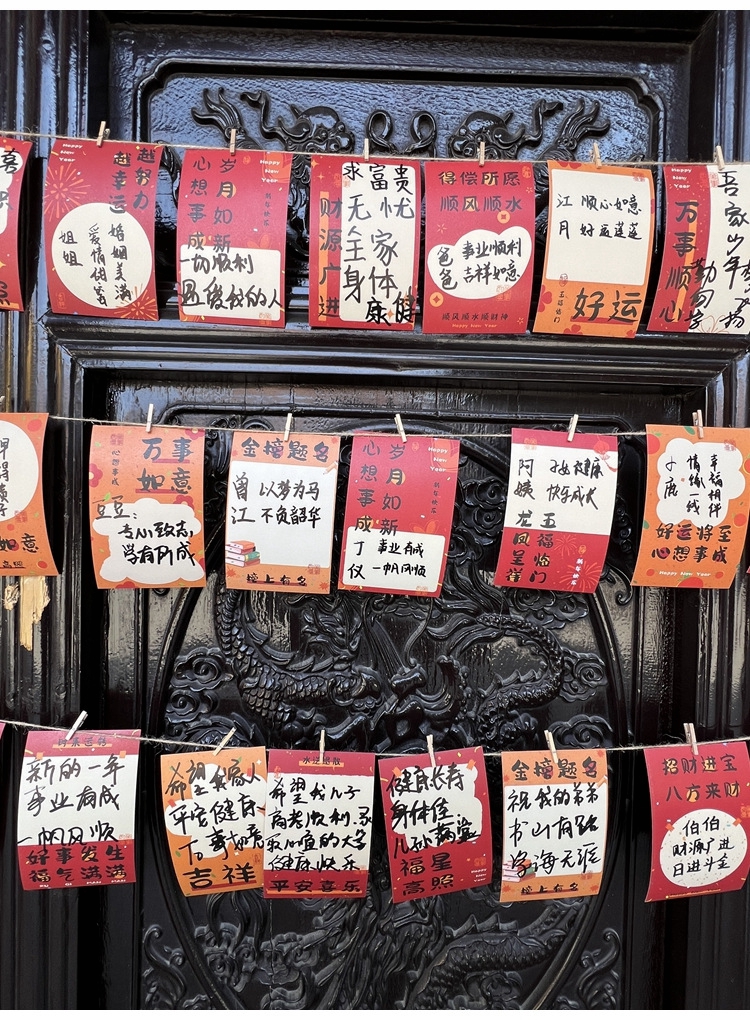 喜
Happy
New
Year
越努力
越幸运
姐姐
婚姻美满
爱情甜蜜
岁月如新
心想事成
Happy
New
Year
一切顺利
财源广进
求富贵
无忧
全家
身体
康健
得偿所愿
顺风顺水
爸爸
事业顺利
吉祥如意
顺风顺水顺财神
Happy New Year
江月
顺心如意
好运莲莲
好运
Happy
New
Year
万事顺心
吾家少年
如意
心想事成
万事
如意
豆豆：
专心致志
学有所成
金榜题名
曾江
以梦为马
不负韶华
榜上有名
岁月如新
心想事成
Happy
New
Year
丁仪
事业有成
一帆风顺
阿姨
快乐成长
五福临门
龙凤呈祥
幸福相伴
情缘一线
好运将至
心想事成
Happy New Year
新的一年
事业有成
一帆风顺
好事发生
福气满满
希望我家人
平安健康
万事如意
吉祥
希望我儿子
高考顺利.录
取心宜的大学
健康快乐
平安喜乐
健康长寿
身体佳
儿孙满堂
福星
高照
金榜题名
祝我的弟弟
书山有路
学海无涯
榜上有名
招财进宝
八方来财
伯伯
财源广进
日进斗金